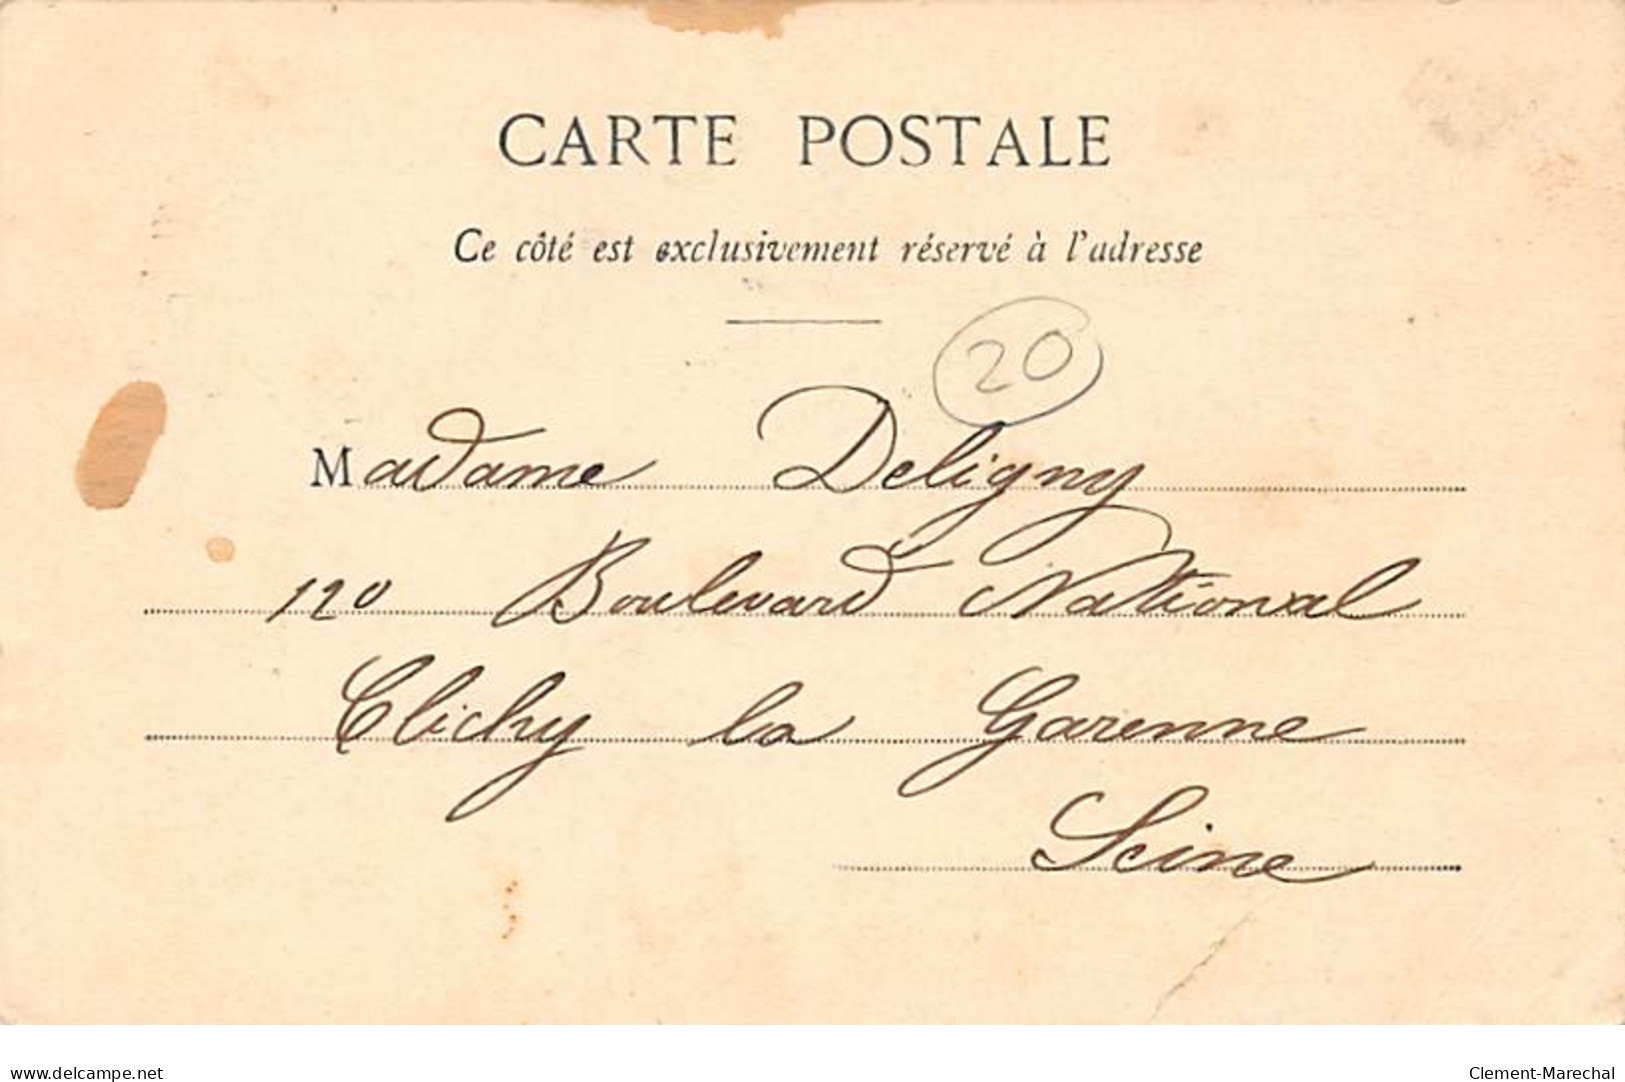 CARTE POSTALE
Ce côté est exclusivement réservé à l'adresse
20
Madame Deligny
120 Boulevard National
Clichy la Garenne
Seine
delcampe.net
Clement-Marechal